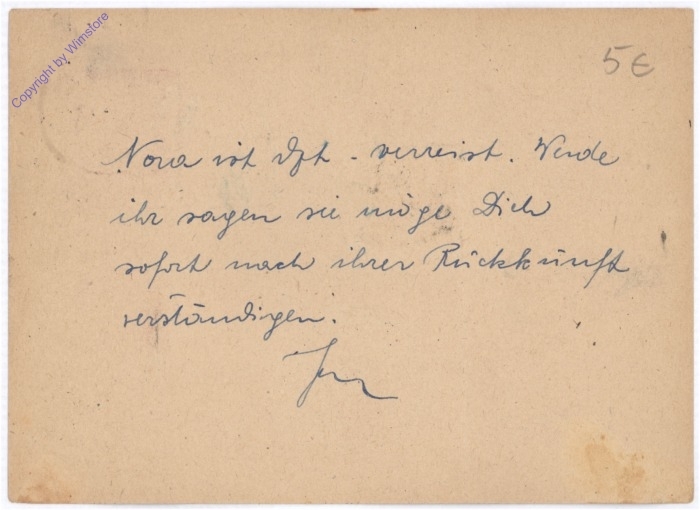 Copyright by Wimstore
5€
Nora ist dzt. verreist. Werde
ihr sagen sie möge Dich
sofort nach ihrer Rückkunft
verständigen.